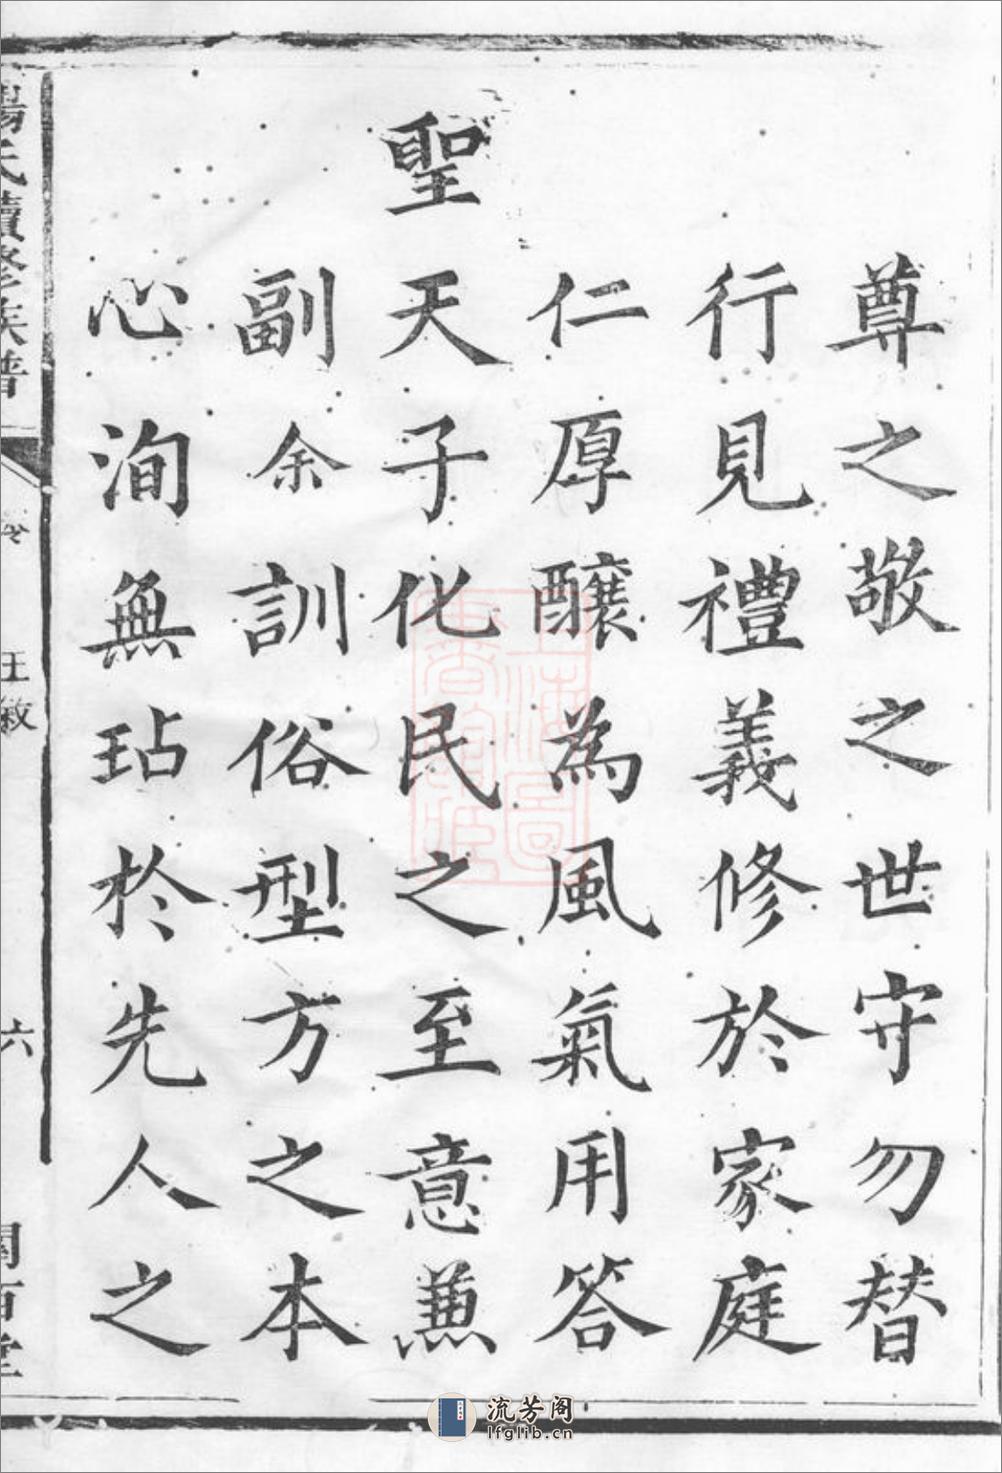 尊之敬之世守勿替
行見禮義修於家庭
仁厚釀為風氣用答
聖天子化民之至意兼
副余訓俗型方之本
心洵無玷於先人之
氏續修族譜
王敘
六
上海圖書館藏
流芳阁
lfglib.cn